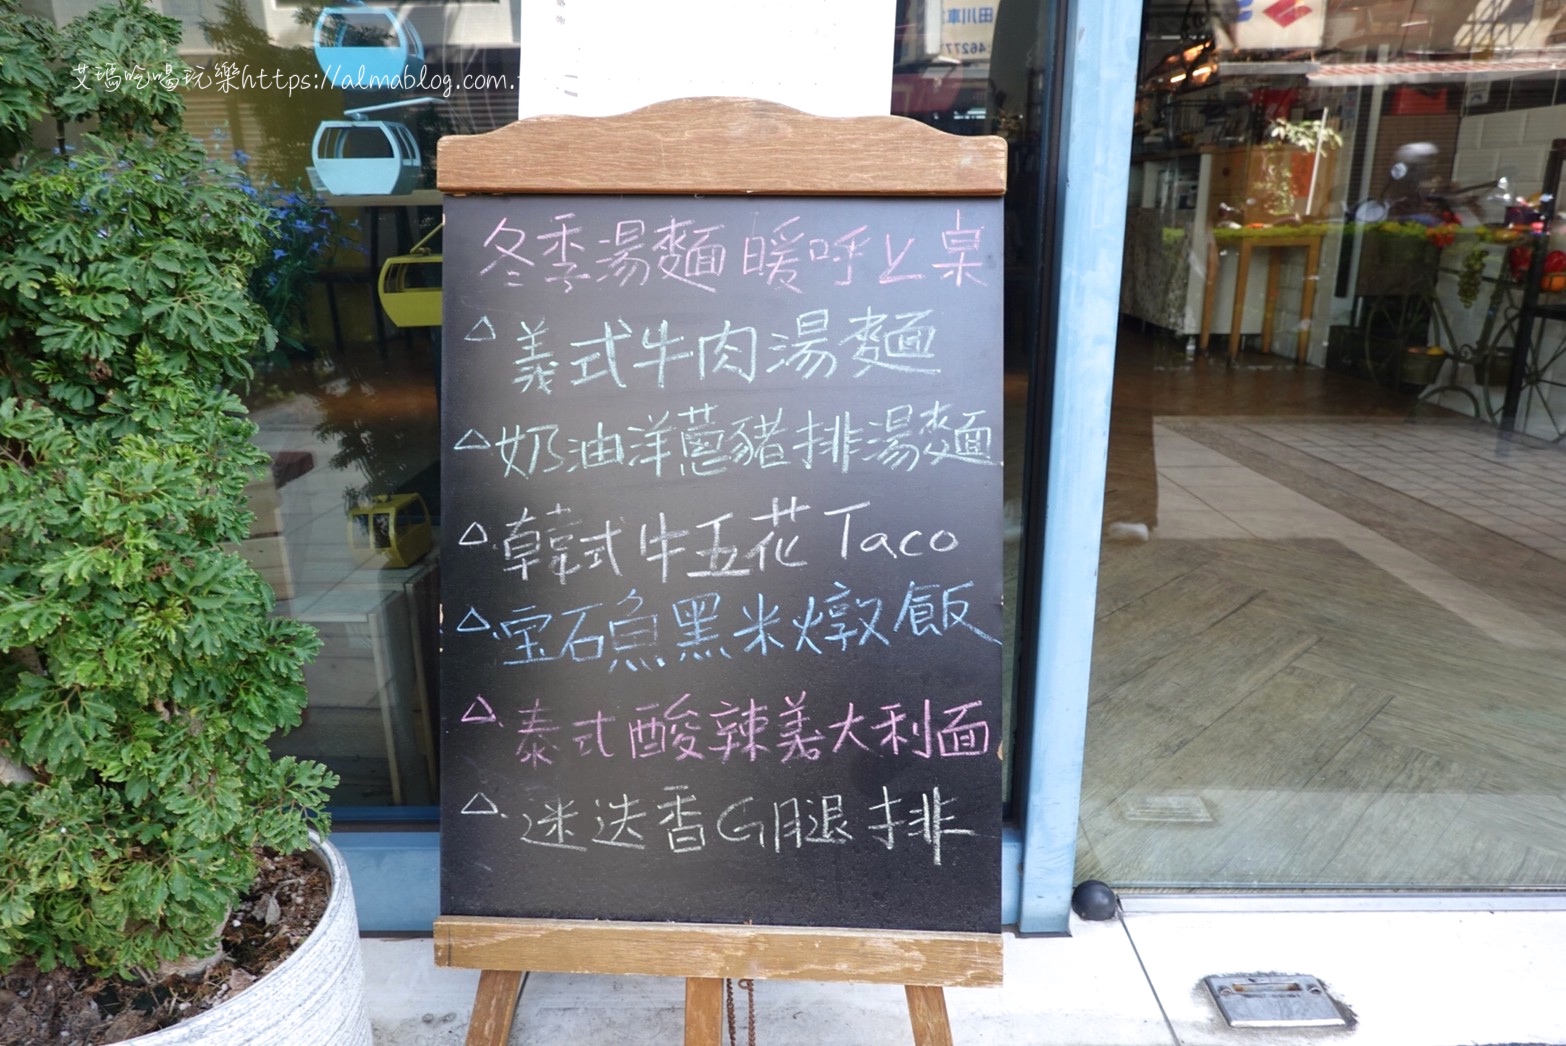 艾瑪吃喝玩樂https://almablog.com.t
田川車
:46277
冬季湯麵 暖呼上桌
△ 義式牛肉湯麵
△ 奶油洋蔥豬排湯麵
△ 韓式牛五花Taco
△ 宝石魚黑米燉飯
△ 泰式酸辣義大利面
△ 迷迭香G腿排